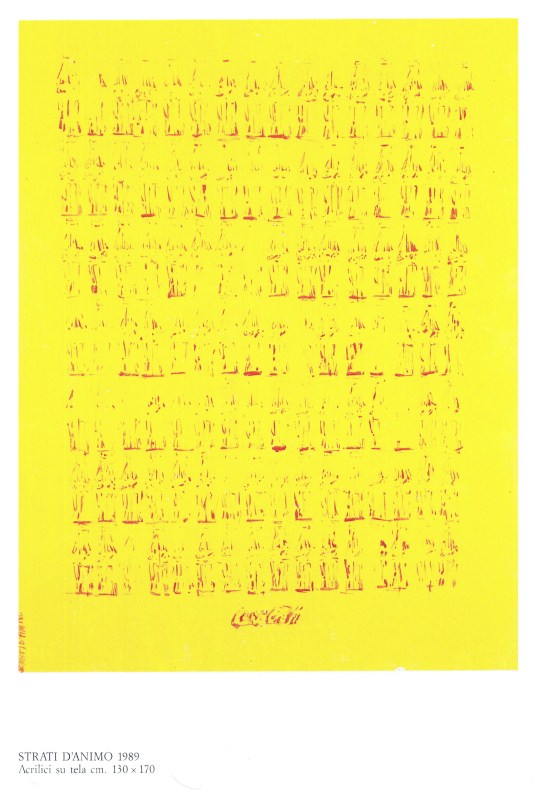 Coca-Cola
STRATI D'ANIMO 1989
Acrilici su tela cm. 130 × 170